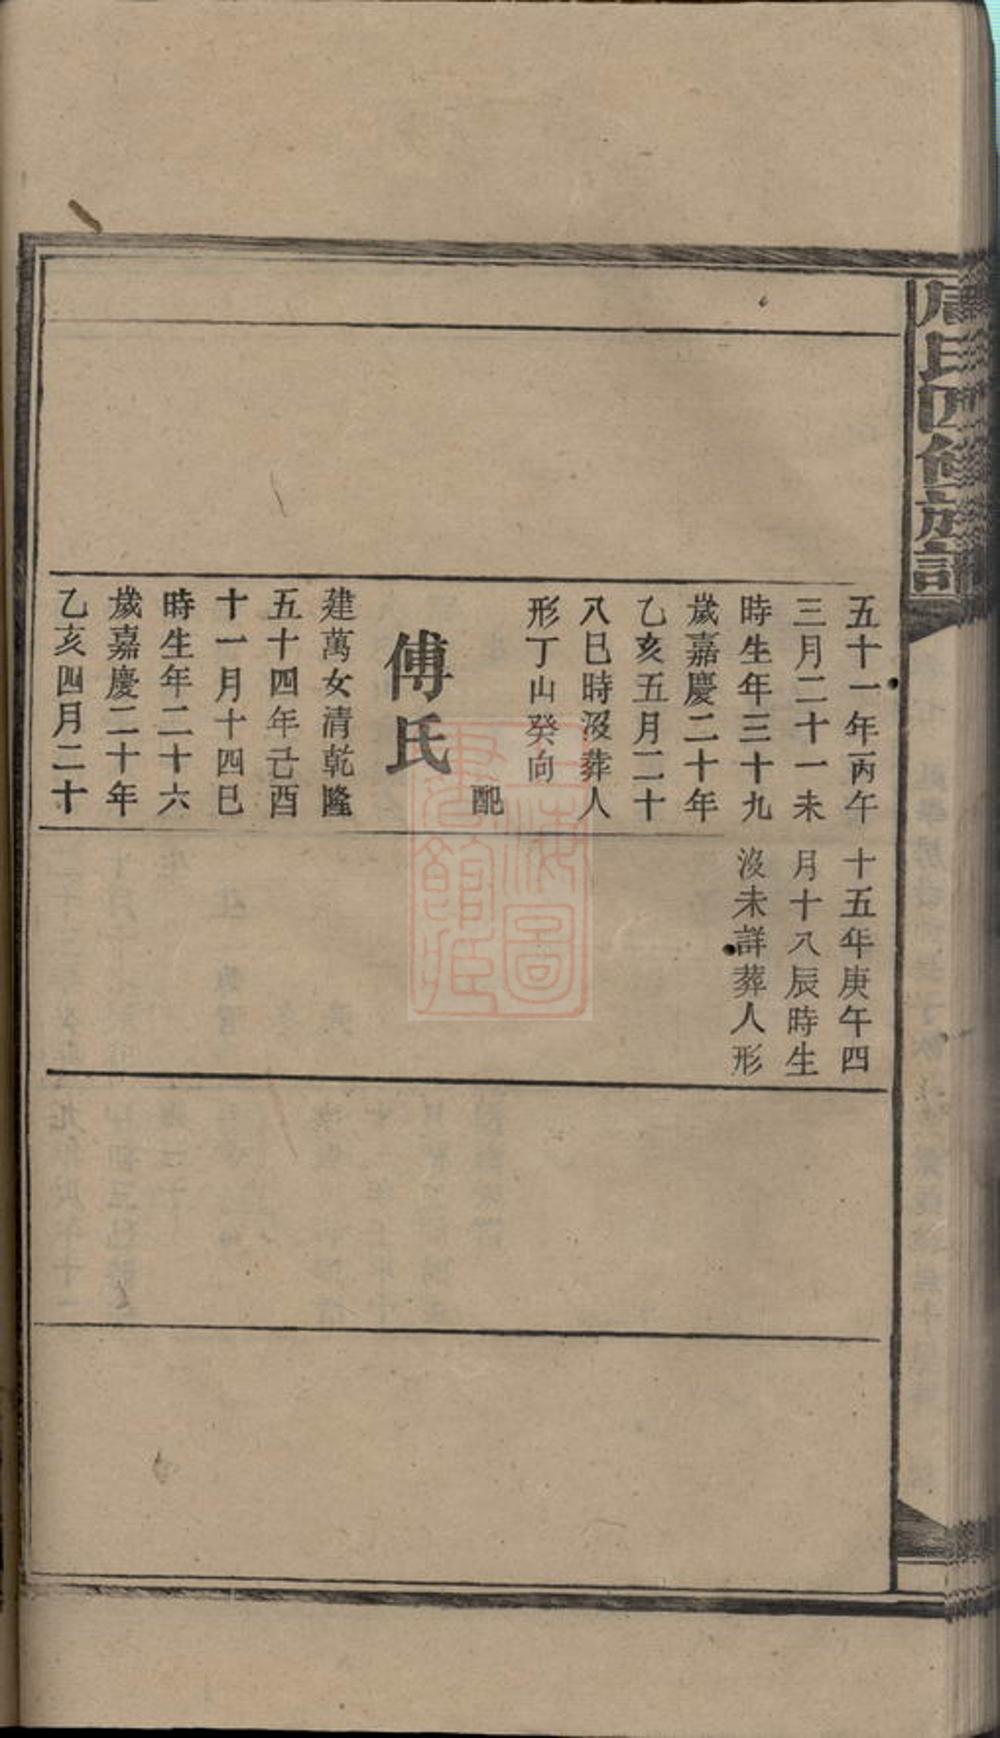 氏四修族譜
五十一年丙午
三月二十一未
時生年三十九
歲嘉慶二十年
乙亥五月二十
八巳時沒葬人
形丁山癸向
配
傅氏
建萬女清乾隆
五十四年己酉
十一月十四巳
時生年二十六
歲嘉慶二十年
乙亥四月二十
十五年庚午四
月十八辰時生
沒未詳葬人形
上海圖
書館藏